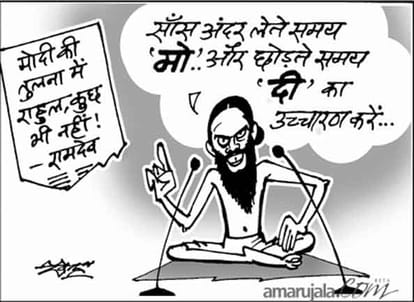 मोदी की
तुलना में
राहुल, कुछ
भी नहीं!
– रामदेव
साँस अंदर लेते समय
'मो'.. और छोड़ते समय
'दी' का
उच्चारण करें...
amarujala.com
BETA